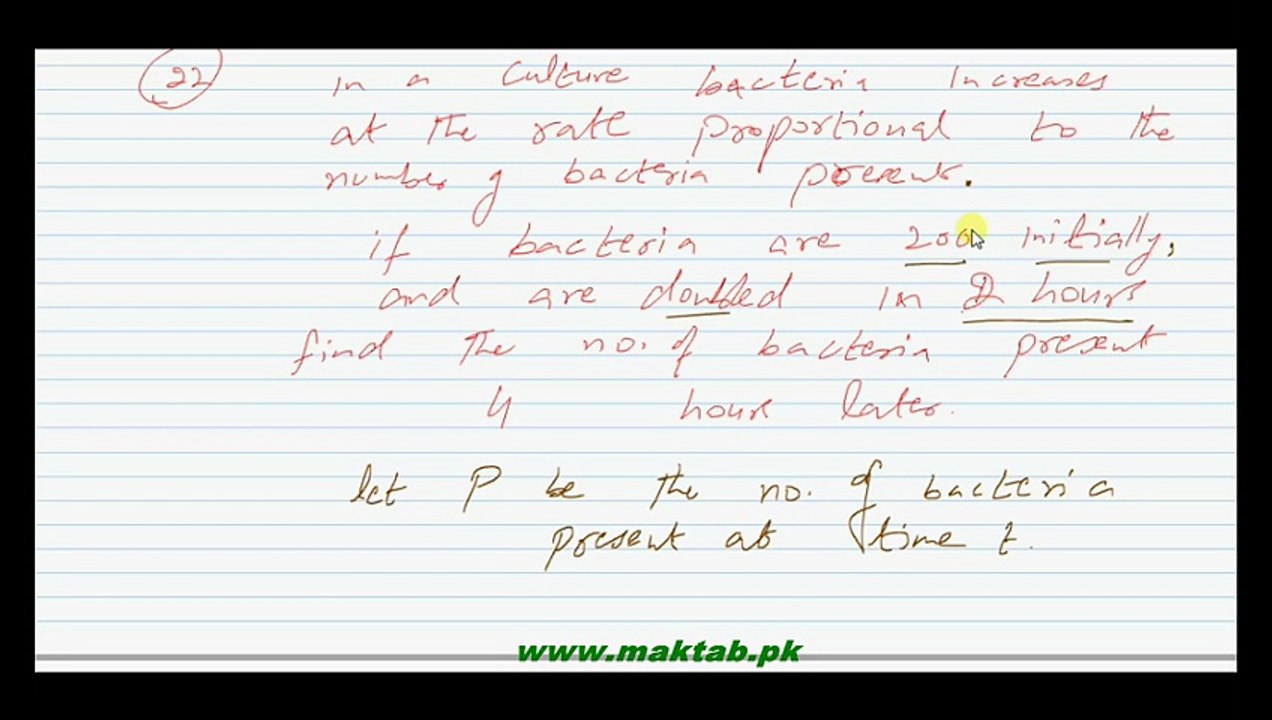 22 In a culture bacteria Increases
at the rate proportional to the
number of bacteria present.
if bacteria are 200 initially,
and are doubled in 2 hours
find the no. of bacteria present
4 hour later.
let P be the no. of bacteria
present at time t.
www.maktab.pk